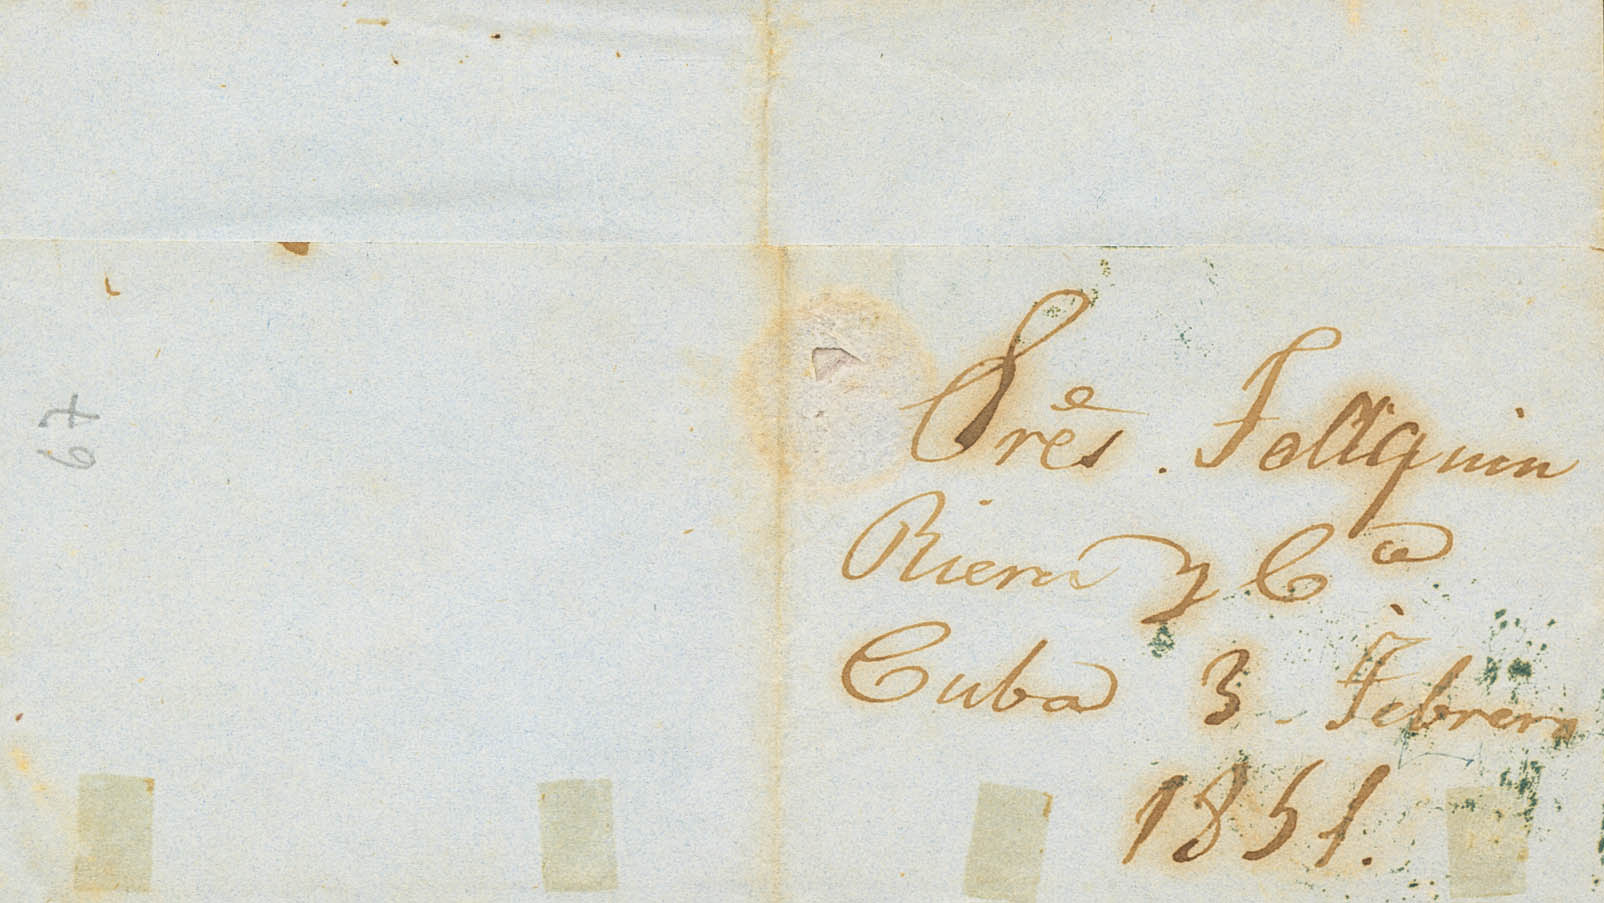 Sres. Follquin
Riera y Ca
Cuba 3 Febrero
1851.
67